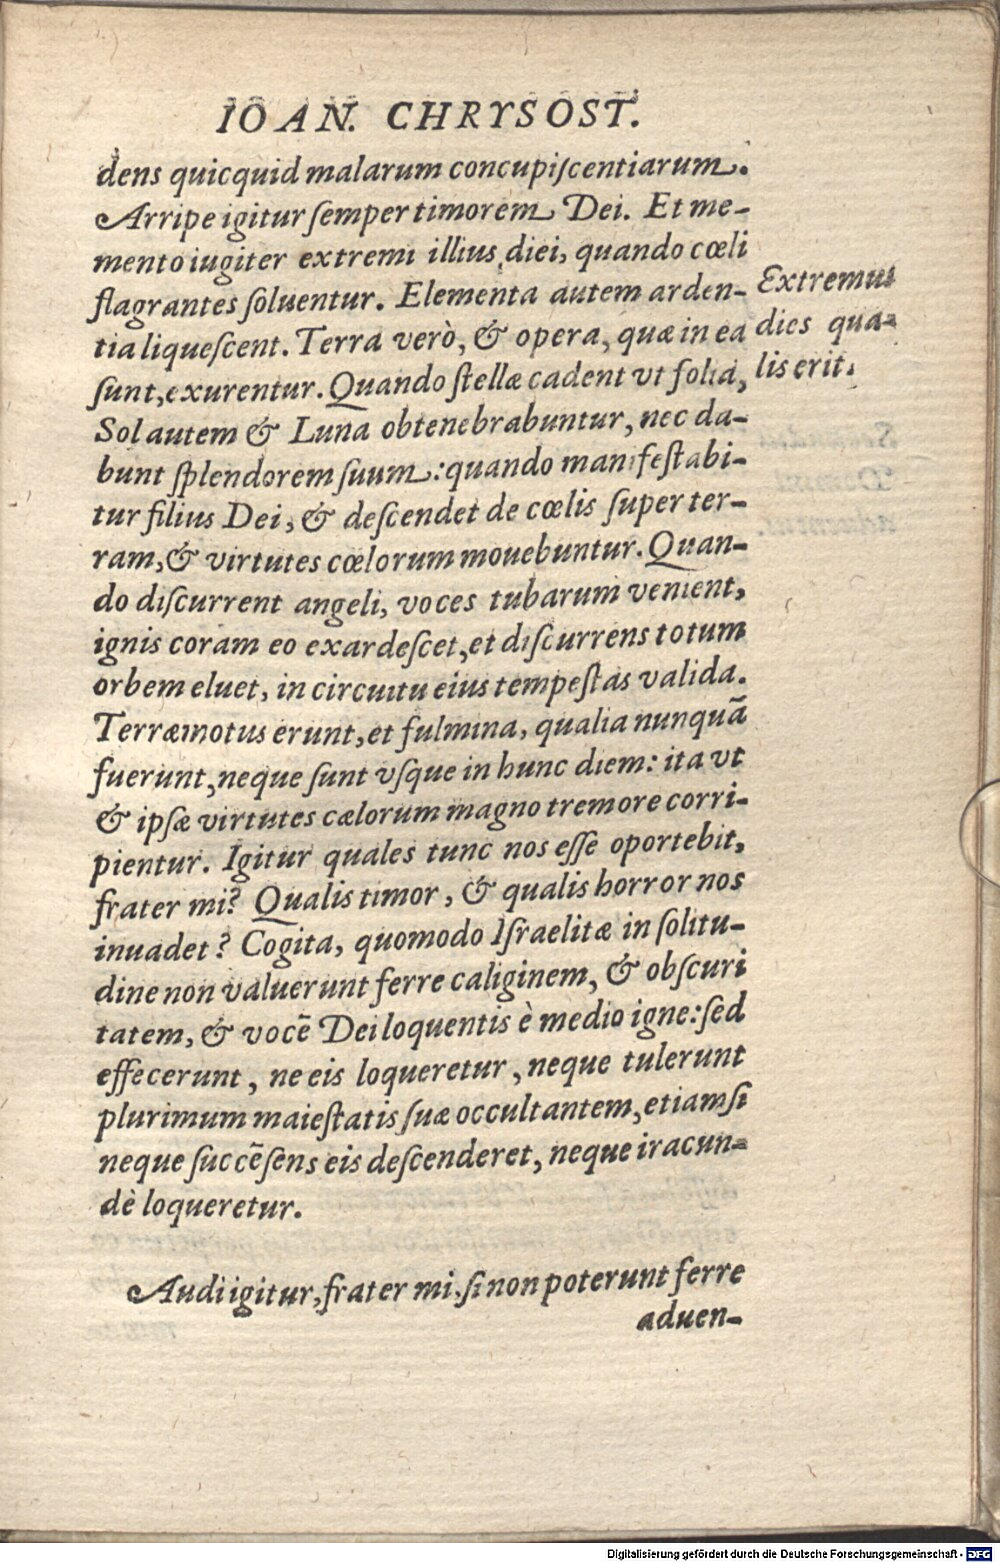 IOAN. CHRYSOST.
dens quicquid malarum concupiſcentiarum.
Arripe igitur ſemper timorem Dei. Et me-
mento iugiter extremi illius diei, quando cœli
flagrantes ſoluentur. Elementa autem arden-
tia liqueſcent. Terra verò, & opera, quæ in ea
ſunt, exurentur. Quando ſtellæ cadent vt folia,
Sol autem & Luna obtenebrabuntur, nec da-
bunt ſplendorem ſuum: quando manifeſtabi-
tur filius Dei, & deſcendet de cœlis ſuper ter-
ram, & virtutes cœlorum mouebuntur. Quan-
do diſcurrent angeli, voces tubarum venient,
ignis coram eo exardeſcet, et diſcurrens totum
orbem eluet, in circuitu eius tempeſtas valida.
Terræmotus erunt, et fulmina, qualia nunquã
fuerunt, neque ſunt vſque in hunc diem: ita vt
& ipſæ virtutes cælorum magno tremore corri-
pientur. Igitur quales tunc nos eſſe oportebit,
frater mi? Qualis timor, & qualis horror nos
inuadet? Cogita, quomodo Iſraelitæ in ſolitu-
dine non valuerunt ferre caliginem, & obſcuri
tatem, & vocẽ Dei loquentis è medio igne: ſed
effecerunt, ne eis loqueretur, neque tulerunt
plurimum maieſtatis ſuæ occultantem, etiamſi
neque ſuccẽſens eis deſcenderet, neque iracun-
dè loqueretur.
Audi igitur, frater mi, ſi non poterunt ferre
aduen-
Extremus
dies qua-
lis erit.
Digitalisierung gefördert durch die Deutsche Forschungsgemeinschaft - DFG